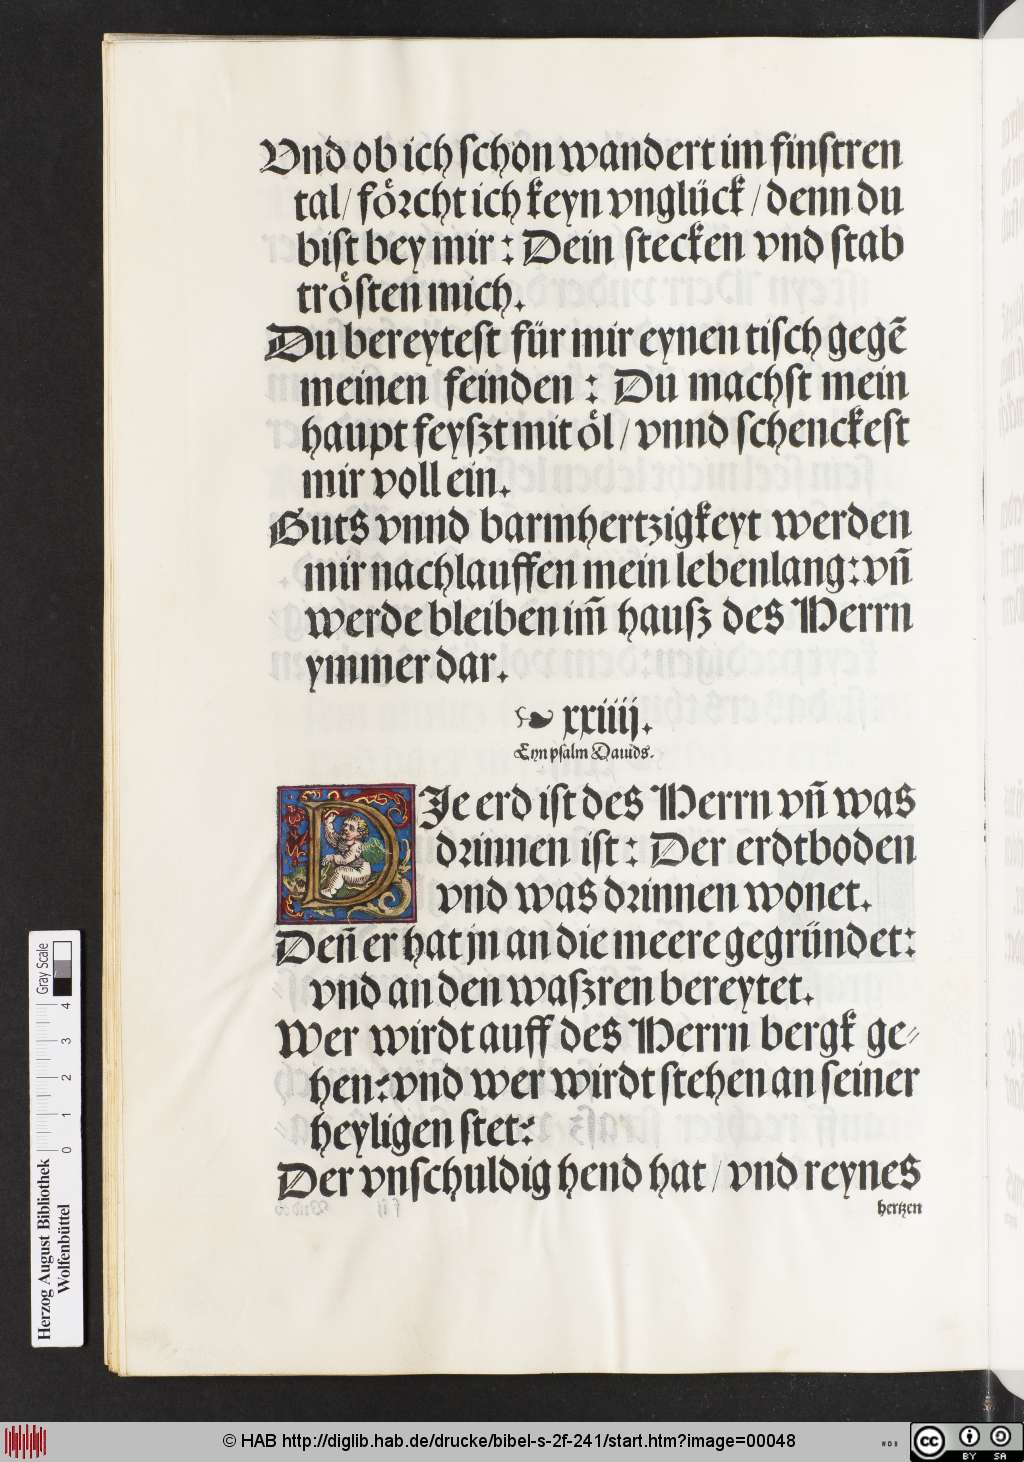 Vnd ob ich schon wandert im finstren
tal / förcht ich keyn vnglück / denn du
bist bey mir : Dein stecken vnd stab
trösten mich.
Du bereytest für mir eynen tisch gegē
meinen feinden : Du machst mein
haupt feyszt mit öl / vnnd schenckest
mir voll ein.
Guts vnnd barmhertzigkeyt werden
mir nachlauffen mein lebenlang : vn̄
werde bleiben im̄ hausz des Herrn
ymmer dar.
xxiiij.
Eyn psalm Dauids.
DIe erd ist des Herrn vn̄ was
drinnen ist : Der erdtboden
vnd was drinnen wonet.
Den̄ er hat jn an die meere gegründet :
vnd an den waszren bereytet.
Wer wirdt auff des Herrn bergk ge⸗
hen : vnd wer wirdt stehen an seiner
heyligen stet :
Der vnschuldig hend hat / vnd reynes
hertzen
Herzog August Bibliothek
Wolfenbüttel
0 1 2 3 4
Gray Scale
© HAB http://diglib.hab.de/drucke/bibel-s-2f-241/start.htm?image=00048
WDB
cc BY SA